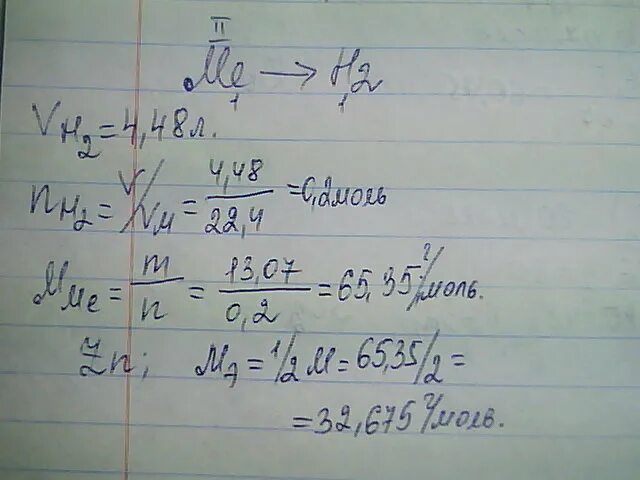 II
Me → H2
1 1
VH2 = 4,48 л.
nH2 = V/VM = 4,48/22,4 = 0,2 моль
MMe = m/n = 13,07/0,2 = 65,35 г/моль.
Zn; Mэ = 1/2 M = 65,35/2 =
= 32,675 г/моль.